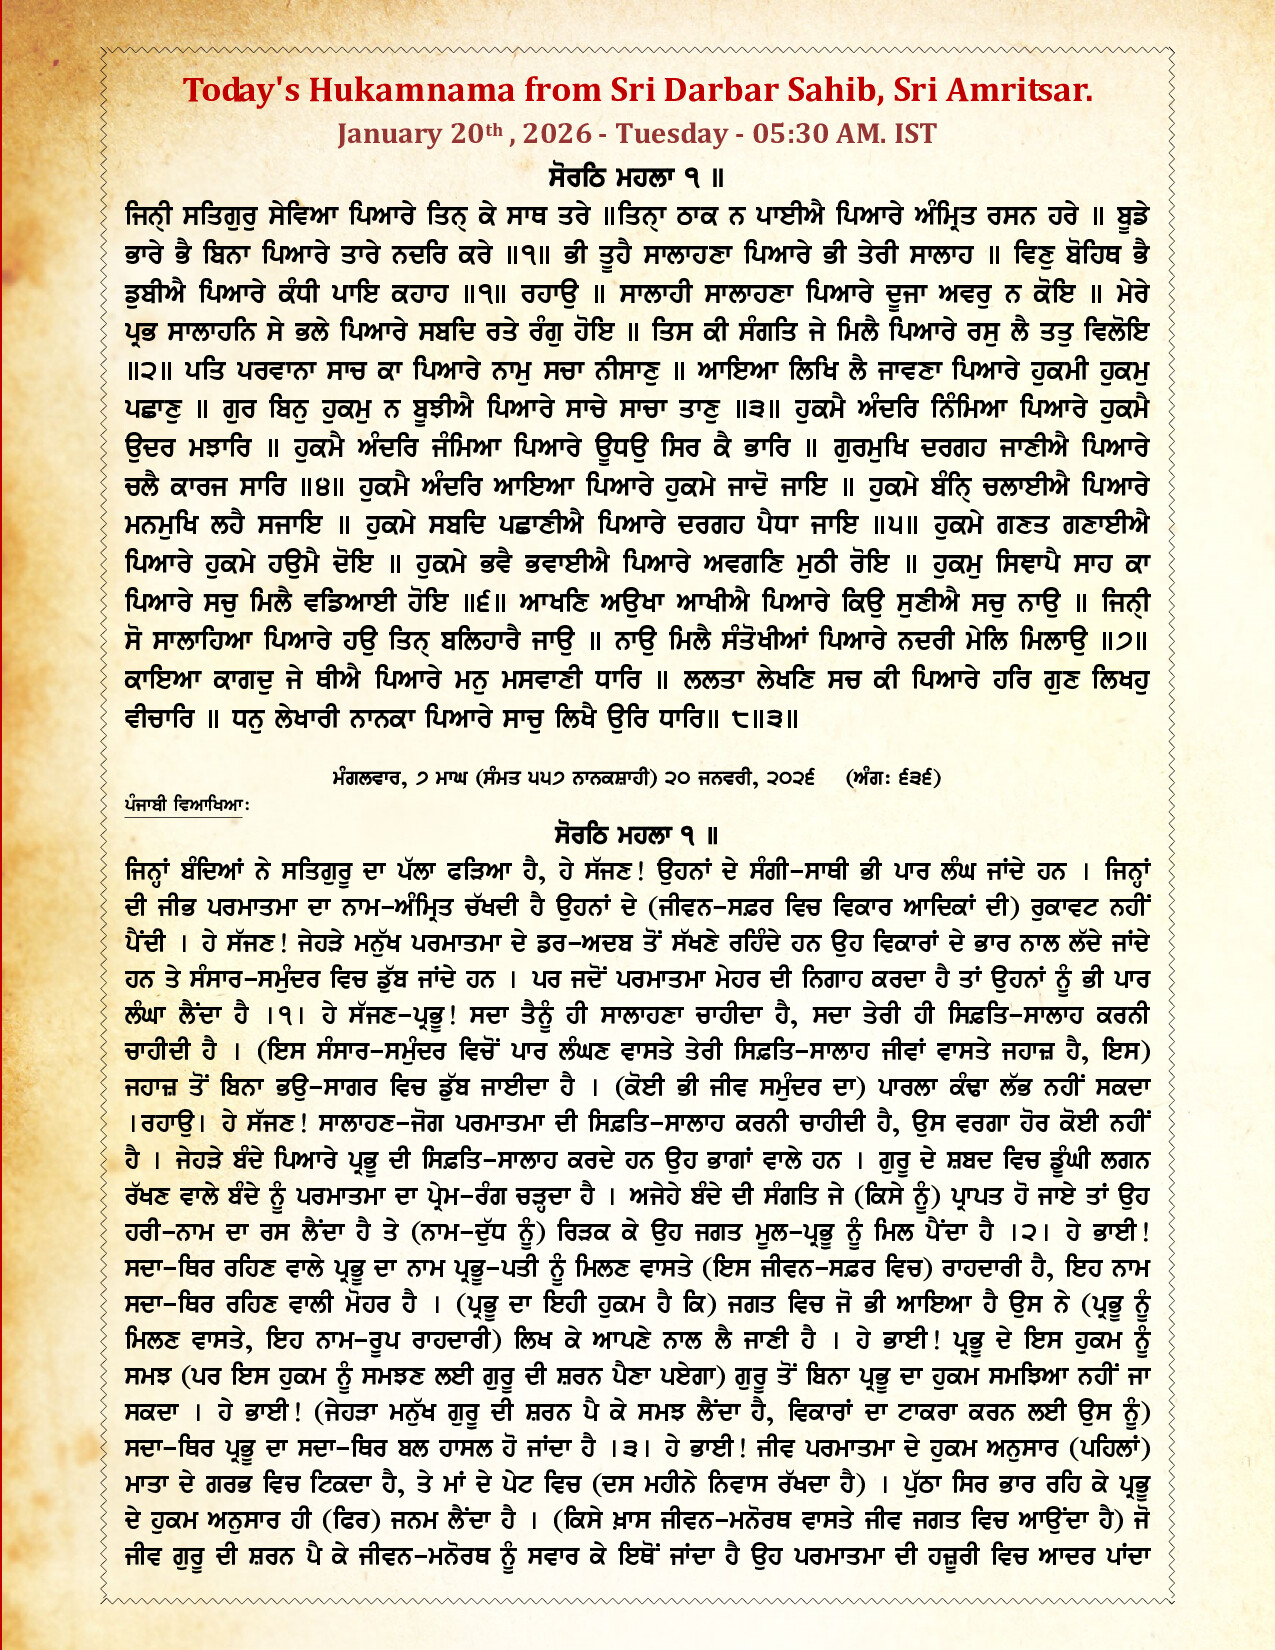 Today's Hukamnama from Sri Darbar Sahib, Sri Amritsar.
January 20th , 2026 - Tuesday - 05:30 AM. IST
ਸੋਰਠਿ ਮਹਲਾ ੧ ॥
ਜਿਨ੍ਹੀ ਸਤਿਗੁਰੁ ਸੇਵਿਆ ਪਿਆਰੇ ਤਿਨ੍ਹ ਕੇ ਸਾਥ ਤਰੇ ॥ਤਿਨ੍ਹਾ ਠਾਕ ਨ ਪਾਈਐ ਪਿਆਰੇ ਅੰਮ੍ਰਿਤ ਰਸਨ ਹਰੇ ॥ ਬੂਡੇ
ਭਾਰੇ ਭੈ ਬਿਨਾ ਪਿਆਰੇ ਤਾਰੇ ਨਦਰਿ ਕਰੇ ॥੧॥ ਭੀ ਤੂਹੈ ਸਾਲਾਹਣਾ ਪਿਆਰੇ ਭੀ ਤੇਰੀ ਸਾਲਾਹ ॥ ਵਿਣੁ ਬੋਹਿਥ ਭੈ
ਡੁਬੀਐ ਪਿਆਰੇ ਕੰਧੀ ਪਾਇ ਕਹਾਹ ॥੧॥ ਰਹਾਉ ॥ ਸਾਲਾਹੀ ਸਾਲਾਹਣਾ ਪਿਆਰੇ ਦੂਜਾ ਅਵਰੁ ਨ ਕੋਇ ॥ ਮੇਰੇ
ਪ੍ਰਭ ਸਾਲਾਹਨਿ ਸੇ ਭਲੇ ਪਿਆਰੇ ਸਬਦਿ ਰਤੇ ਰੰਗੁ ਹੋਇ ॥ ਤਿਸ ਕੀ ਸੰਗਤਿ ਜੇ ਮਿਲੈ ਪਿਆਰੇ ਰਸੁ ਲੈ ਤਤੁ ਵਿਲੋਇ
॥੨॥ ਪਤਿ ਪਰਵਾਨਾ ਸਾਚ ਕਾ ਪਿਆਰੇ ਨਾਮੁ ਸਚਾ ਨੀਸਾਣੁ ॥ ਆਇਆ ਲਿਖਿ ਲੈ ਜਾਵਣਾ ਪਿਆਰੇ ਹੁਕਮੀ ਹੁਕਮੁ
ਪਛਾਣੁ ॥ ਗੁਰ ਬਿਨੁ ਹੁਕਮੁ ਨ ਬੂਝੀਐ ਪਿਆਰੇ ਸਾਚੇ ਸਾਚਾ ਤਾਣੁ ॥੩॥ ਹੁਕਮੈ ਅੰਦਰਿ ਨਿੰਮਿਆ ਪਿਆਰੇ ਹੁਕਮੈ
ਉਦਰ ਮਝਾਰਿ ॥ ਹੁਕਮੈ ਅੰਦਰਿ ਜੰਮਿਆ ਪਿਆਰੇ ਊਧਉ ਸਿਰ ਕੈ ਭਾਰਿ ॥ ਗੁਰਮੁਖਿ ਦਰਗਹ ਜਾਣੀਐ ਪਿਆਰੇ
ਚਲੈ ਕਾਰਜ ਸਾਰਿ ॥੪॥ ਹੁਕਮੈ ਅੰਦਰਿ ਆਇਆ ਪਿਆਰੇ ਹੁਕਮੇ ਜਾਦੋ ਜਾਇ ॥ ਹੁਕਮੇ ਬੰਨ੍ਹਿ ਚਲਾਈਐ ਪਿਆਰੇ
ਮਨਮੁਖਿ ਲਹੈ ਸਜਾਇ ॥ ਹੁਕਮੇ ਸਬਦਿ ਪਛਾਣੀਐ ਪਿਆਰੇ ਦਰਗਹ ਪੈਧਾ ਜਾਇ ॥੫॥ ਹੁਕਮੇ ਗਣਤ ਗਣਾਈਐ
ਪਿਆਰੇ ਹੁਕਮੇ ਹਉਮੈ ਦੋਇ ॥ ਹੁਕਮੇ ਭਵੈ ਭਵਾਈਐ ਪਿਆਰੇ ਅਵਗਣਿ ਮੁਠੀ ਰੋਇ ॥ ਹੁਕਮੁ ਸਿਞਾਪੈ ਸਾਹ ਕਾ
ਪਿਆਰੇ ਸਚੁ ਮਿਲੈ ਵਡਿਆਈ ਹੋਇ ॥੬॥ ਆਖਣਿ ਅਉਖਾ ਆਖੀਐ ਪਿਆਰੇ ਕਿਉ ਸੁਣੀਐ ਸਚੁ ਨਾਉ ॥ ਜਿਨ੍ਹੀ
ਸੋ ਸਾਲਾਹਿਆ ਪਿਆਰੇ ਹਉ ਤਿਨ੍ਹ ਬਲਿਹਾਰੈ ਜਾਉ ॥ ਨਾਉ ਮਿਲੈ ਸੰਤੋਖੀਆਂ ਪਿਆਰੇ ਨਦਰੀ ਮੇਲਿ ਮਿਲਾਉ ॥੭॥
ਕਾਇਆ ਕਾਗਦੁ ਜੇ ਥੀਐ ਪਿਆਰੇ ਮਨੁ ਮਸਵਾਣੀ ਧਾਰਿ ॥ ਲਲਤਾ ਲੇਖਣਿ ਸਚ ਕੀ ਪਿਆਰੇ ਹਰਿ ਗੁਣ ਲਿਖਹੁ
ਵੀਚਾਰਿ ॥ ਧਨੁ ਲੇਖਾਰੀ ਨਾਨਕਾ ਪਿਆਰੇ ਸਾਚੁ ਲਿਖੈ ਉਰਿ ਧਾਰਿ॥ ੮॥੩॥
ਮੰਗਲਵਾਰ, ੭ ਮਾਘ (ਸੰਮਤ ੫੫੭ ਨਾਨਕਸ਼ਾਹੀ) ੨੦ ਜਨਵਰੀ, ੨੦੨੬ (ਅੰਗ: ੬੩੬)
ਪੰਜਾਬੀ ਵਿਆਖਿਆ:
ਸੋਰਠਿ ਮਹਲਾ ੧ ॥
ਜਿਨ੍ਹਾਂ ਬੰਦਿਆਂ ਨੇ ਸਤਿਗੁਰੂ ਦਾ ਪੱਲਾ ਫੜਿਆ ਹੈ, ਹੇ ਸੱਜਣ! ਉਹਨਾਂ ਦੇ ਸੰਗੀ-ਸਾਥੀ ਭੀ ਪਾਰ ਲੰਘ ਜਾਂਦੇ ਹਨ । ਜਿਨ੍ਹਾਂ
ਦੀ ਜੀਭ ਪਰਮਾਤਮਾ ਦਾ ਨਾਮ-ਅੰਮ੍ਰਿਤ ਚੱਖਦੀ ਹੈ ਉਹਨਾਂ ਦੇ (ਜੀਵਨ-ਸਫ਼ਰ ਵਿਚ ਵਿਕਾਰ ਆਦਿਕਾਂ ਦੀ) ਰੁਕਾਵਟ ਨਹੀਂ
ਪੈਂਦੀ । ਹੇ ਸੱਜਣ! ਜੇਹੜੇ ਮਨੁੱਖ ਪਰਮਾਤਮਾ ਦੇ ਡਰ-ਅਦਬ ਤੋਂ ਸੱਖਣੇ ਰਹਿੰਦੇ ਹਨ ਉਹ ਵਿਕਾਰਾਂ ਦੇ ਭਾਰ ਨਾਲ ਲੱਦੇ ਜਾਂਦੇ
ਹਨ ਤੇ ਸੰਸਾਰ-ਸਮੁੰਦਰ ਵਿਚ ਡੁੱਬ ਜਾਂਦੇ ਹਨ । ਪਰ ਜਦੋਂ ਪਰਮਾਤਮਾ ਮੇਹਰ ਦੀ ਨਿਗਾਹ ਕਰਦਾ ਹੈ ਤਾਂ ਉਹਨਾਂ ਨੂੰ ਭੀ ਪਾਰ
ਲੰਘਾ ਲੈਂਦਾ ਹੈ ।੧। ਹੇ ਸੱਜਣ-ਪ੍ਰਭੂ! ਸਦਾ ਤੈਨੂੰ ਹੀ ਸਾਲਾਹਣਾ ਚਾਹੀਦਾ ਹੈ, ਸਦਾ ਤੇਰੀ ਹੀ ਸਿਫ਼ਤਿ-ਸਾਲਾਹ ਕਰਨੀ
ਚਾਹੀਦੀ ਹੈ । (ਇਸ ਸੰਸਾਰ-ਸਮੁੰਦਰ ਵਿਚੋਂ ਪਾਰ ਲੰਘਣ ਵਾਸਤੇ ਤੇਰੀ ਸਿਫ਼ਤਿ-ਸਾਲਾਹ ਜੀਵਾਂ ਵਾਸਤੇ ਜਹਾਜ਼ ਹੈ, ਇਸ)
ਜਹਾਜ਼ ਤੋਂ ਬਿਨਾ ਭਉ-ਸਾਗਰ ਵਿਚ ਡੁੱਬ ਜਾਈਦਾ ਹੈ । (ਕੋਈ ਭੀ ਜੀਵ ਸਮੁੰਦਰ ਦਾ) ਪਾਰਲਾ ਕੰਢਾ ਲੱਭ ਨਹੀਂ ਸਕਦਾ
।ਰਹਾਉ। ਹੇ ਸੱਜਣ! ਸਾਲਾਹਣ-ਜੋਗ ਪਰਮਾਤਮਾ ਦੀ ਸਿਫ਼ਤਿ-ਸਾਲਾਹ ਕਰਨੀ ਚਾਹੀਦੀ ਹੈ, ਉਸ ਵਰਗਾ ਹੋਰ ਕੋਈ ਨਹੀਂ
ਹੈ । ਜੇਹੜੇ ਬੰਦੇ ਪਿਆਰੇ ਪ੍ਰਭੂ ਦੀ ਸਿਫ਼ਤਿ-ਸਾਲਾਹ ਕਰਦੇ ਹਨ ਉਹ ਭਾਗਾਂ ਵਾਲੇ ਹਨ । ਗੁਰੂ ਦੇ ਸ਼ਬਦ ਵਿਚ ਡੂੰਘੀ ਲਗਨ
ਰੱਖਣ ਵਾਲੇ ਬੰਦੇ ਨੂੰ ਪਰਮਾਤਮਾ ਦਾ ਪ੍ਰੇਮ-ਰੰਗ ਚੜ੍ਹਦਾ ਹੈ । ਅਜੇਹੇ ਬੰਦੇ ਦੀ ਸੰਗਤਿ ਜੇ (ਕਿਸੇ ਨੂੰ) ਪ੍ਰਾਪਤ ਹੋ ਜਾਏ ਤਾਂ ਉਹ
ਹਰੀ-ਨਾਮ ਦਾ ਰਸ ਲੈਂਦਾ ਹੈ ਤੇ (ਨਾਮ-ਦੁੱਧ ਨੂੰ) ਰਿੜਕ ਕੇ ਉਹ ਜਗਤ ਮੂਲ-ਪ੍ਰਭੂ ਨੂੰ ਮਿਲ ਪੈਂਦਾ ਹੈ ।੨। ਹੇ ਭਾਈ!
ਸਦਾ-ਥਿਰ ਰਹਿਣ ਵਾਲੇ ਪ੍ਰਭੂ ਦਾ ਨਾਮ ਪ੍ਰਭੂ-ਪਤੀ ਨੂੰ ਮਿਲਣ ਵਾਸਤੇ (ਇਸ ਜੀਵਨ-ਸਫ਼ਰ ਵਿਚ) ਰਾਹਦਾਰੀ ਹੈ, ਇਹ ਨਾਮ
ਸਦਾ-ਥਿਰ ਰਹਿਣ ਵਾਲੀ ਮੋਹਰ ਹੈ । (ਪ੍ਰਭੂ ਦਾ ਇਹੀ ਹੁਕਮ ਹੈ ਕਿ) ਜਗਤ ਵਿਚ ਜੋ ਭੀ ਆਇਆ ਹੈ ਉਸ ਨੇ (ਪ੍ਰਭੂ ਨੂੰ
ਮਿਲਣ ਵਾਸਤੇ, ਇਹ ਨਾਮ-ਰੂਪ ਰਾਹਦਾਰੀ) ਲਿਖ ਕੇ ਆਪਣੇ ਨਾਲ ਲੈ ਜਾਣੀ ਹੈ । ਹੇ ਭਾਈ! ਪ੍ਰਭੂ ਦੇ ਇਸ ਹੁਕਮ ਨੂੰ
ਸਮਝ (ਪਰ ਇਸ ਹੁਕਮ ਨੂੰ ਸਮਝਣ ਲਈ ਗੁਰੂ ਦੀ ਸ਼ਰਨ ਪੈਣਾ ਪਏਗਾ) ਗੁਰੂ ਤੋਂ ਬਿਨਾ ਪ੍ਰਭੂ ਦਾ ਹੁਕਮ ਸਮਝਿਆ ਨਹੀਂ ਜਾ
ਸਕਦਾ । ਹੇ ਭਾਈ! (ਜੇਹੜਾ ਮਨੁੱਖ ਗੁਰੂ ਦੀ ਸ਼ਰਨ ਪੈ ਕੇ ਸਮਝ ਲੈਂਦਾ ਹੈ, ਵਿਕਾਰਾਂ ਦਾ ਟਾਕਰਾ ਕਰਨ ਲਈ ਉਸ ਨੂੰ)
ਸਦਾ-ਥਿਰ ਪ੍ਰਭੂ ਦਾ ਸਦਾ-ਥਿਰ ਬਲ ਹਾਸਲ ਹੋ ਜਾਂਦਾ ਹੈ ।੩। ਹੇ ਭਾਈ! ਜੀਵ ਪਰਮਾਤਮਾ ਦੇ ਹੁਕਮ ਅਨੁਸਾਰ (ਪਹਿਲਾਂ)
ਮਾਤਾ ਦੇ ਗਰਭ ਵਿਚ ਟਿਕਦਾ ਹੈ, ਤੇ ਮਾਂ ਦੇ ਪੇਟ ਵਿਚ (ਦਸ ਮਹੀਨੇ ਨਿਵਾਸ ਰੱਖਦਾ ਹੈ) । ਪੁੱਠਾ ਸਿਰ ਭਾਰ ਰਹਿ ਕੇ ਪ੍ਰਭੂ
ਦੇ ਹੁਕਮ ਅਨੁਸਾਰ ਹੀ (ਫਿਰ) ਜਨਮ ਲੈਂਦਾ ਹੈ । (ਕਿਸੇ ਖ਼ਾਸ ਜੀਵਨ-ਮਨੋਰਥ ਵਾਸਤੇ ਜੀਵ ਜਗਤ ਵਿਚ ਆਉਂਦਾ ਹੈ) ਜੋ
ਜੀਵ ਗੁਰੂ ਦੀ ਸ਼ਰਨ ਪੈ ਕੇ ਜੀਵਨ-ਮਨੋਰਥ ਨੂੰ ਸਵਾਰ ਕੇ ਇਥੋਂ ਜਾਂਦਾ ਹੈ ਉਹ ਪਰਮਾਤਮਾ ਦੀ ਹਜ਼ੂਰੀ ਵਿਚ ਆਦਰ ਪਾਂਦਾ